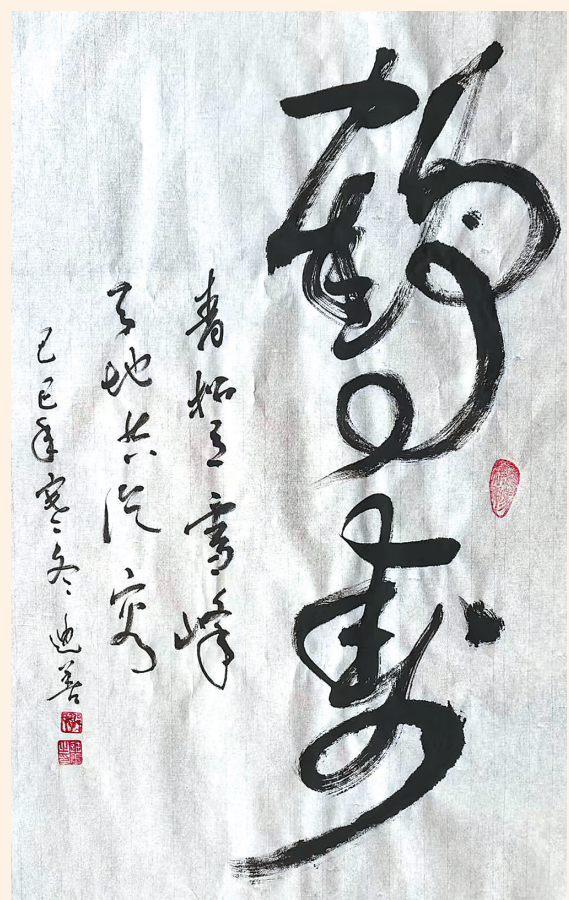 鹤寿
青松立雪峰
天地共从容
己巳年寒冬 迪善